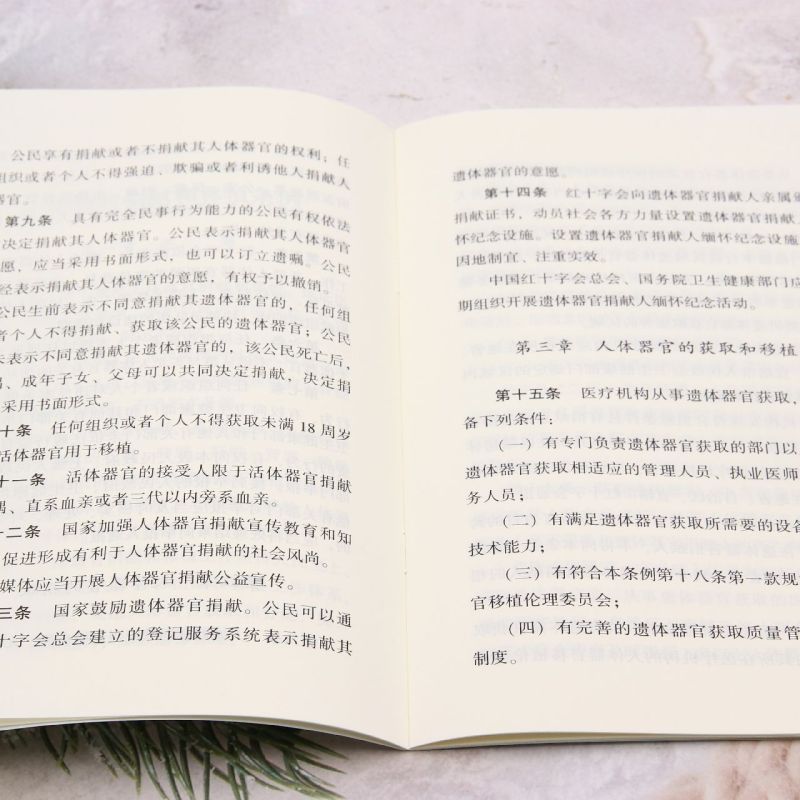 公民享有捐献或者不捐献其人体器官的权利；任
组织或者个人不得强迫、欺骗或者利诱他人捐献人
器官。
第九条 具有完全民事行为能力的公民有权依法
决定捐献其人体器官。公民表示捐献其人体器官
愿，应当采用书面形式，也可以订立遗嘱。公民
经表示捐献其人体器官的意愿，有权予以撤销。
公民生前表示不同意捐献其遗体器官的，任何组
者个人不得捐献、获取该公民的遗体器官；公民
未表示不同意捐献其遗体器官的，该公民死亡后，
偶、成年子女、父母可以共同决定捐献，决定捐
采用书面形式。
十条 任何组织或者个人不得获取未满 18 周岁
活体器官用于移植。
十一条 活体器官的接受人限于活体器官捐献
偶、直系血亲或者三代以内旁系血亲。
十二条 国家加强人体器官捐献宣传教育和知
促进形成有利于人体器官捐献的社会风尚。
媒体应当开展人体器官捐献公益宣传。
三条 国家鼓励遗体器官捐献。公民可以通
十字会总会建立的登记服务系统表示捐献其
遗体器官的意愿。
第十四条 红十字会向遗体器官捐献人亲属颁
捐献证书，动员社会各方力量设置遗体器官捐献
怀纪念设施。设置遗体器官捐献人缅怀纪念设施
因地制宜、注重实效。
中国红十字会总会、国务院卫生健康部门应
期组织开展遗体器官捐献人缅怀纪念活动。
第三章 人体器官的获取和移植
第十五条 医疗机构从事遗体器官获取，
备下列条件：
（一）有专门负责遗体器官获取的部门以
遗体器官获取相适应的管理人员、执业医师
务人员；
（二）有满足遗体器官获取所需要的设备
技术能力；
（三）有符合本条例第十八条第一款规
官移植伦理委员会；
（四）有完善的遗体器官获取质量管
制度。